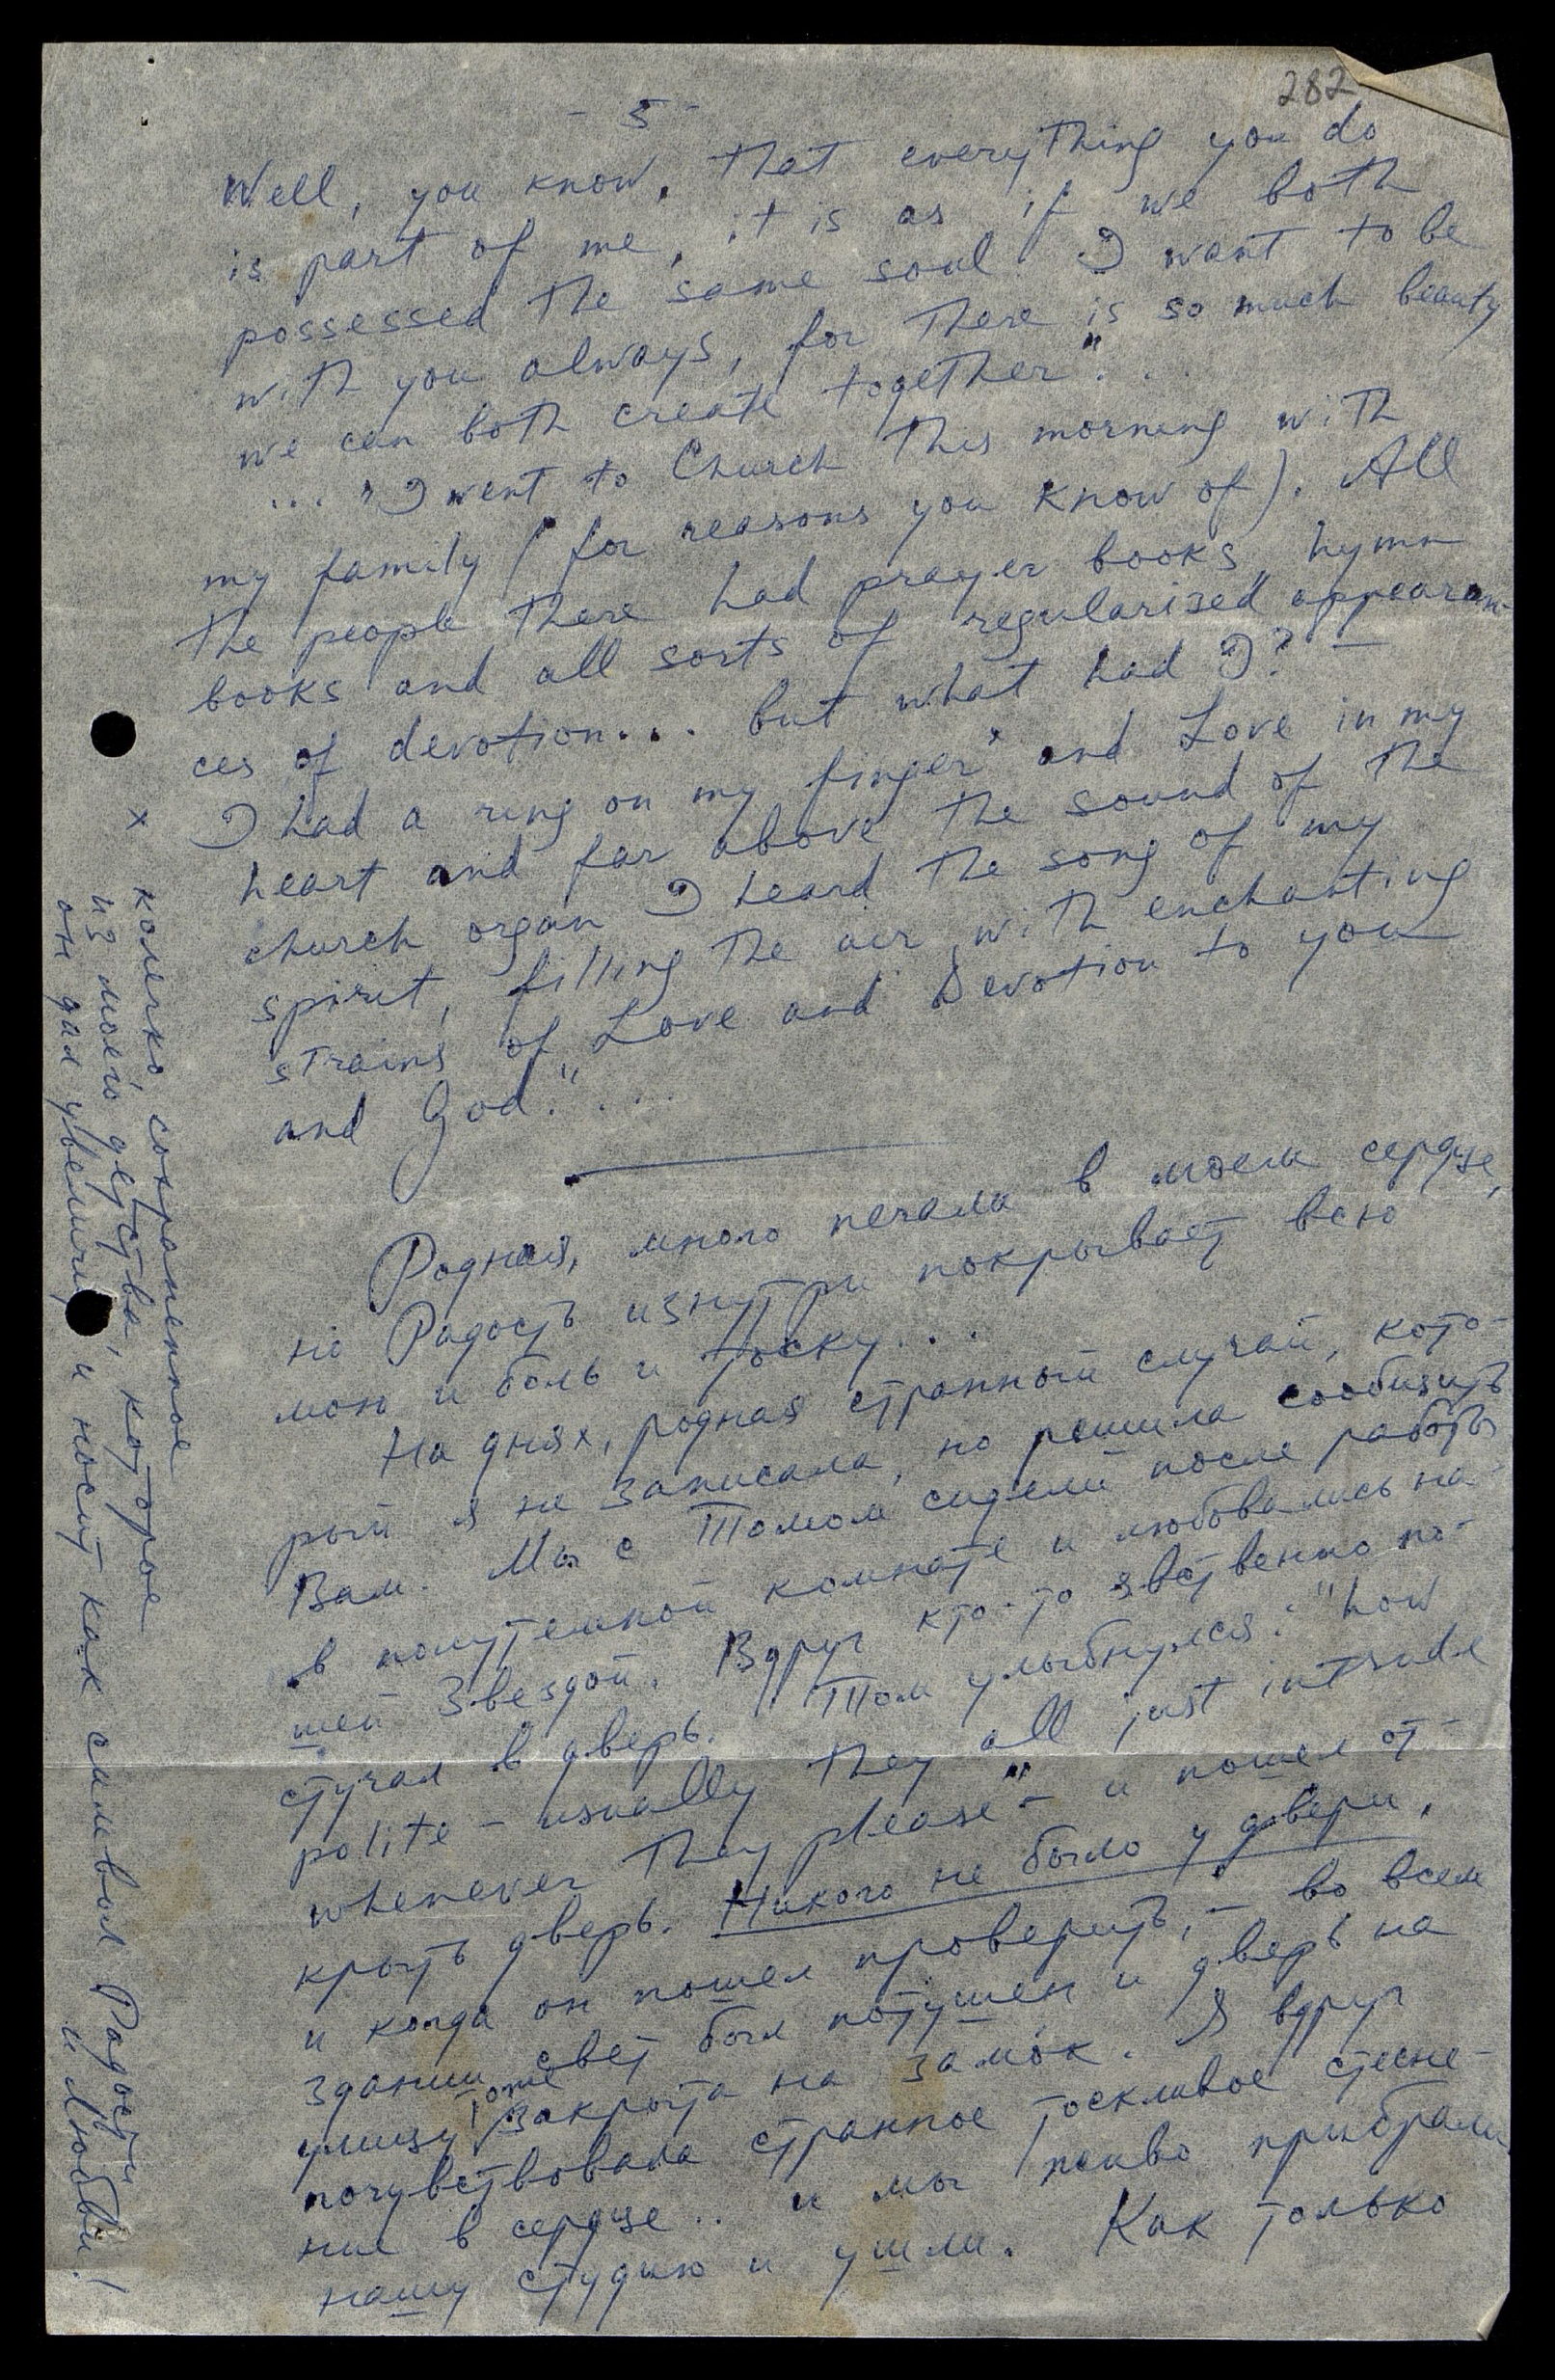 282
- 5 -
Well, you know, that everything you do
is part of me, it is as if we both
possessed the same soul. I want to be
with you always, for there is so much beauty
we can both create together"...
... "I went to Church this morning with
my family (for reasons you know of). All
the people there had prayer books, hymn
books and all sorts of "regularised" appearan-
ces of devotion... but what had I? —
I had a ring on my finger x and Love in my
heart and far above the sound of the
church organ I heard the song of my
spirit, filling the air with enchanting
strains of Love and Devotion to you
and God."....
Родная, много печали в моем сердце,
но Радость изнутри покрывает всю
мою и боль и тоску...
На днях, родная странный случай, кото-
рый я не записала, но решила сообщить
Вам. Мы с Томом сидели после работы
в полутемной комнате и любовались на-
шей Звездой. Вдруг кто-то явственно по-
стучал в дверь. Том улыбнулся: "how
polite - usually they all just intrude
whenever they please" - и пошел от-
крыть дверь. Никого не было у двери,
и когда он пошел проверить, - во всем
здании свет был потушен и дверь на
улицу тоже закрыта на замок. Я вдруг
почувствовала странное тоскливое стесне-
ние в сердце.. и мы прибрали
нашу студию и ушли. Как только
x колечко, сохраненное
из моего детства, которое
он дал увеличить и носит как символ Радости
и Любви!